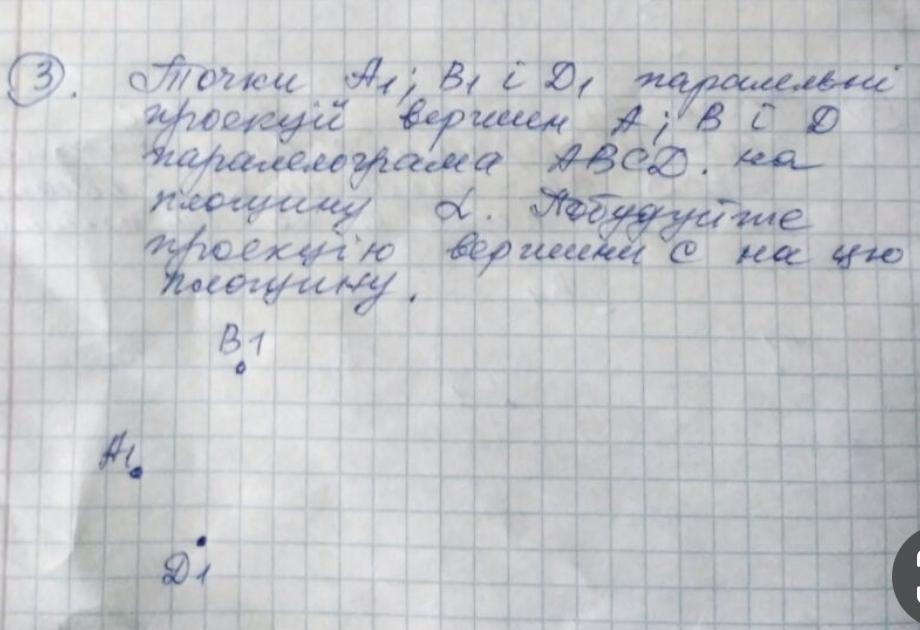 3. Точки A1; B1 і D1 паралельні
проекцій вершин A; B і D
паралелограма ABCD. на
площину α. Побудуйте
проекцію вершини C на цю
площину.
B1
A1
D1